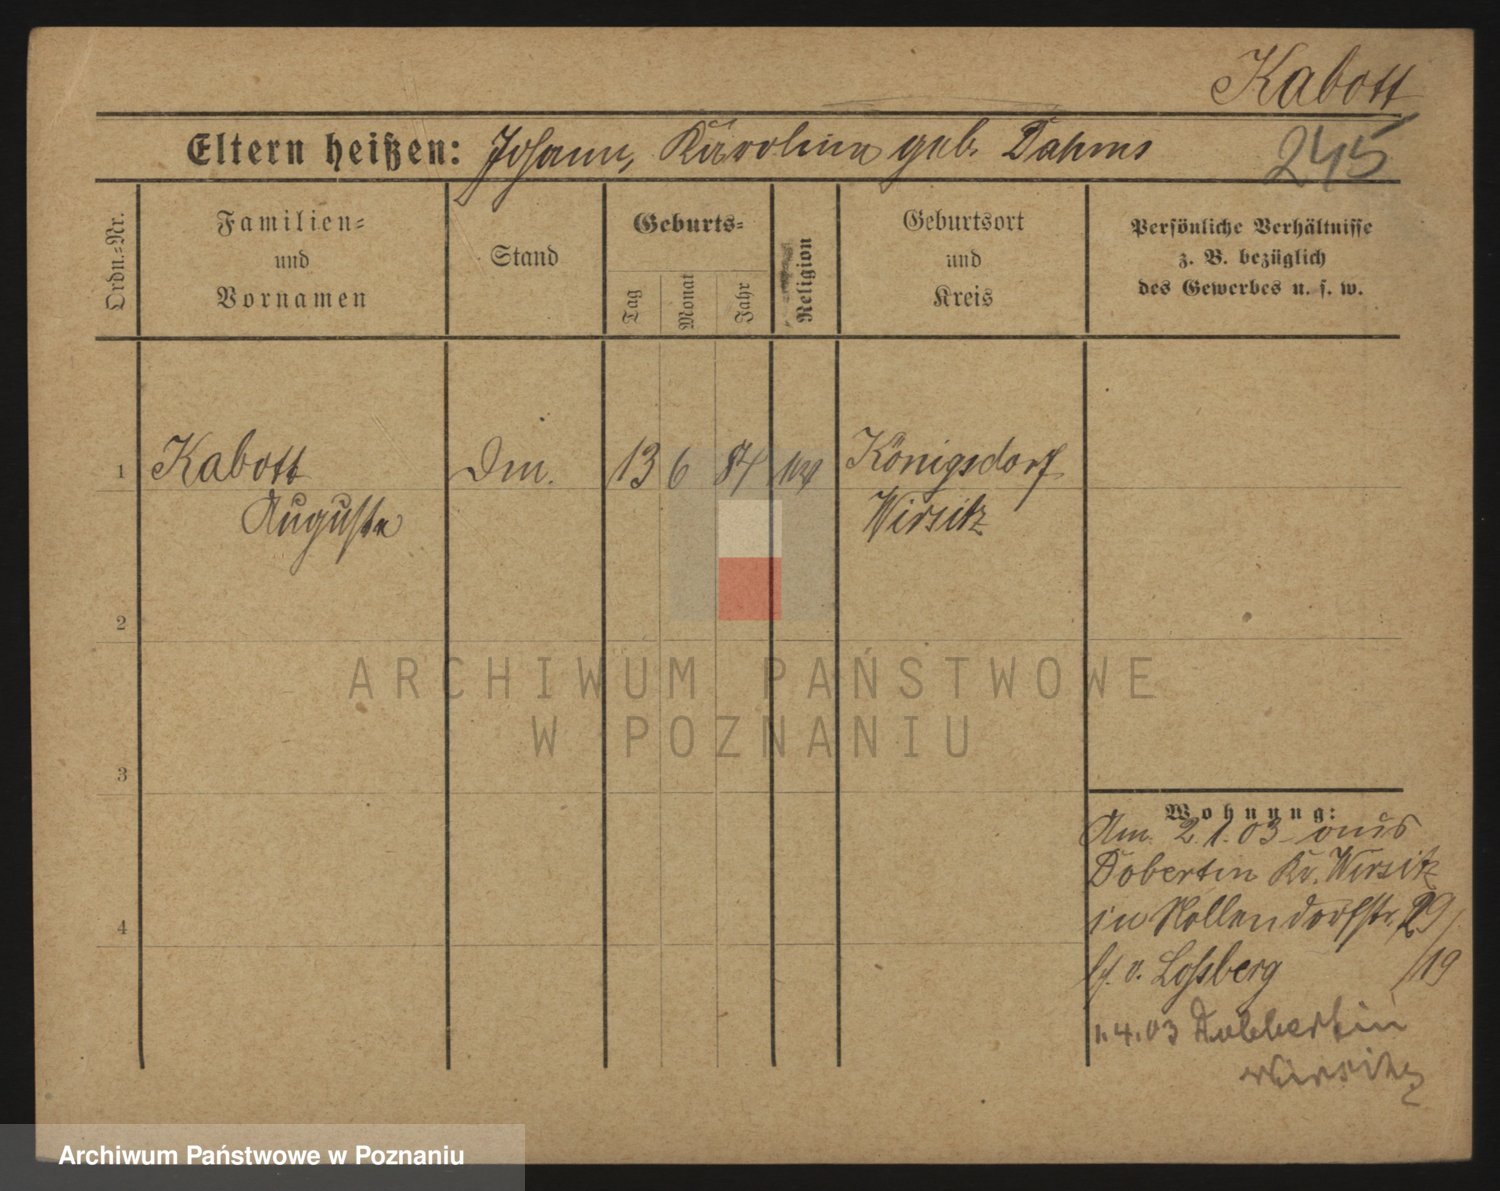 Kabott
Eltern heißen: Johann, Karolina geb. Dahms
245
Ordn.-Nr.
Familien-
und
Vornamen
Stand
Geburts-
Tag
Monat
Jahr
Religion
Geburtsort
und
Kreis
Persönliche Verhältnisse
z. B. bezüglich
des Gewerbes u. s. w.
1 Kabott Dm. 13 6 84 Königsdorf
Auguste Wirsitz
2
ARCHIWUM PAŃSTWOWE
W POZNANIU
3
Wohnung:
Am 2.1.03 aus
Dobertin Kr. Wirsitz
in Nollendorfstr. 29/
4
v. Loßberg /19
1.4.03 Dobbertin
Wirsitz
Archiwum Państwowe w Poznaniu